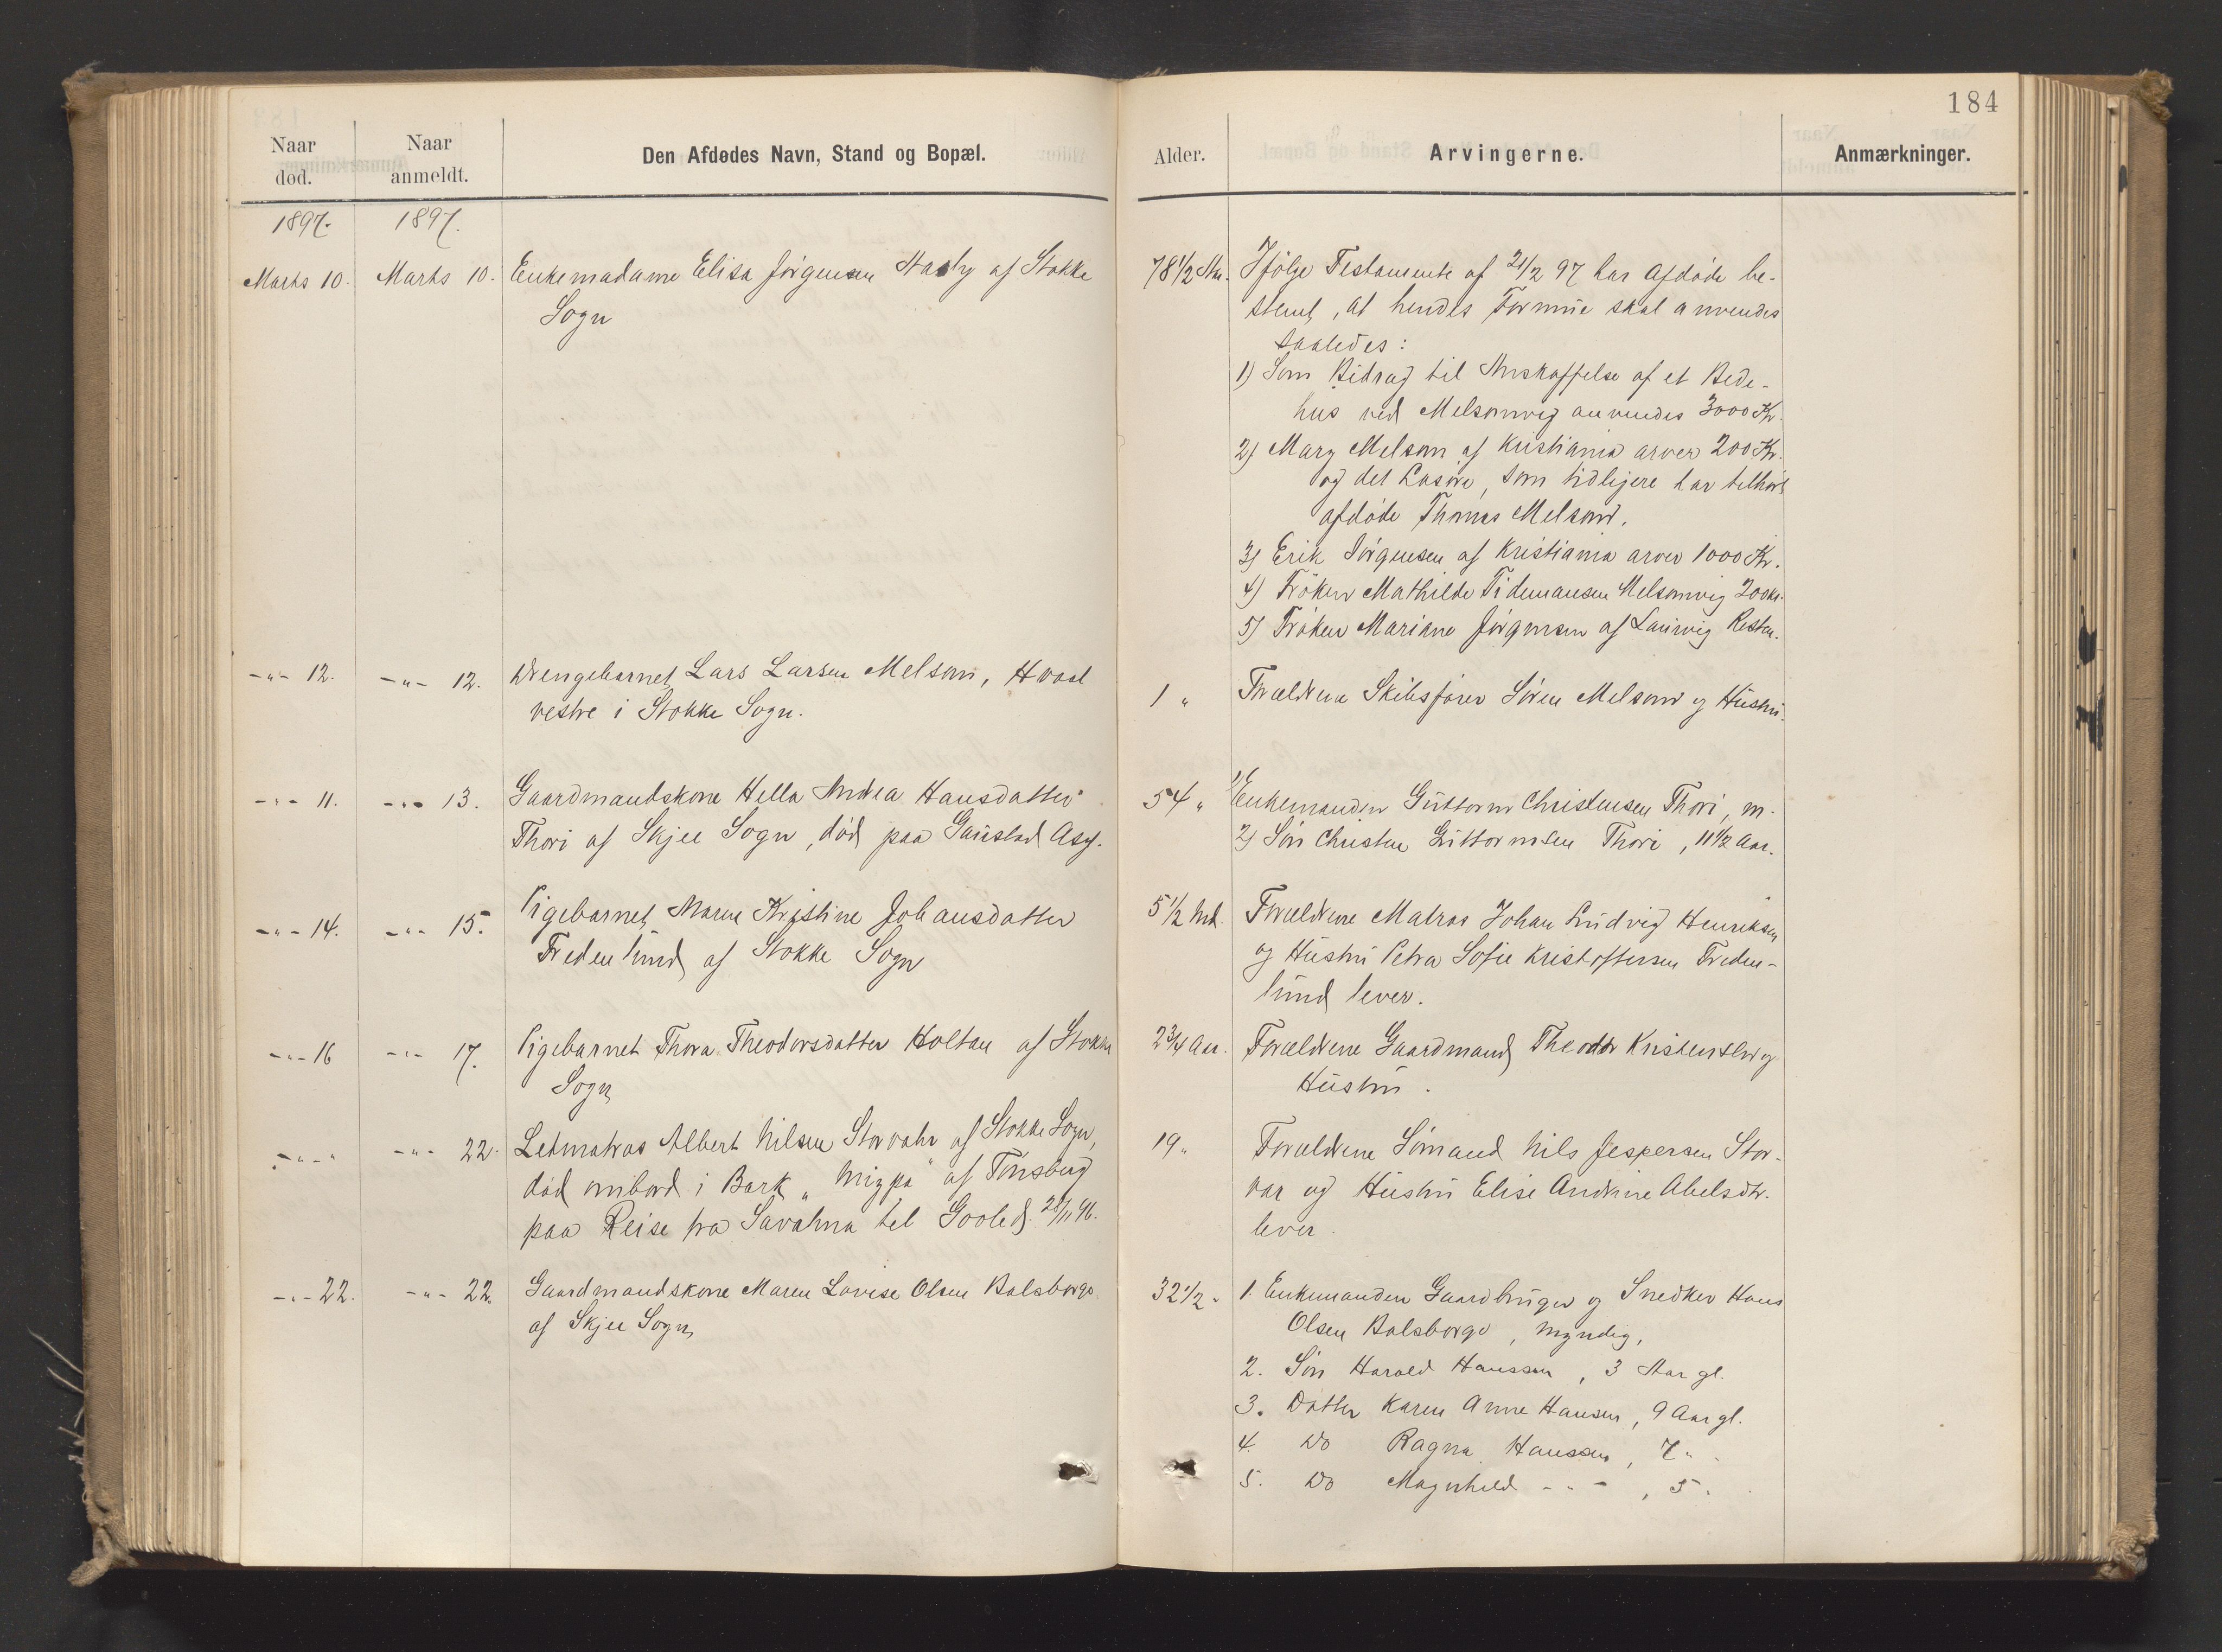 184
Naar død.
Naar anmeldt.
Den Afdødes Navn, Stand og Bopæl.
Alder.
Arvingerne.
Anmærkninger.
1897.
1897.
Marts 10.
Marts 10.
Enkemadame Elisa Jørgensen af Stokke
Sogn
78 1/2 Aar.
Ifølge Testamente af 21/2 97 har Afdøde be-
stemt, at hendes Formue skal anvendes
saaledes:
1) Som Bidrag til Anskaffelse af et Bede-
hus ved Melsomvig anvendes 3000 Kr.
2) Mary Melsom af Kristiania arver 200 Kr.
og det Løsøre, som tidligere har tilhørt
afdøde Thomas Melsom.
3) Erik Jørgensen af Kristiania arver 1000 Kr.
4) Frøken Mathilde Tidemansen Melsomvig 200 kr.
5) Frøken Mariane Jørgensen af Laurvig Resten.
-"- 12.
-"- 12.
Drengebarnet Lars Larsen Melsom, Hvaal
vestre i Stokke Sogn.
1 "
Forældrene Skibsfører Søren Melsom og Hustru.
-"- 11.
-"- 13.
Gaardmandskone Hella Andrea Hansdatter
Thori af Skjee Sogn, død paa Gaustad Asyl.
54 "
1) Enkemanden Guttorm Christensen Thori, m.
2) Søn Christen Guttormsen Thori, 11 1/2 Aar.
-"- 14.
-"- 15.
Pigebarnet Maren Kristine Johansdatter
Fredenlund af Stokke Sogn
5 1/2 Md.
Forældrene Matros Johan Ludvig Henriksen
og Hustru Petra Sofie Kristoffersen Freden-
lund lever.
-"- 16
-"- 17.
Pigebarnet Thora Theodorsdatter Holtan af Stokke
Sogn
2 3/4 Aar.
Forældrene Gaardmand Theodor Kristensen og
Hustru.
-"- "
-"- 22.
Letmatros Albert Nilsen Storvahr af Stokke Sogn,
død ombord i Bark „Mizpa" af Tønsberg
paa Reise fra Savahna til Goole d. 28/11 96.
19 "
Forældrene Sømand Nils Jespersen Stor-
var og Hustru Elise Andrine Abelsdtr.
lever.
-"- 22.
-"- 22.
Gaardmandskone Maren Lovise Olsen Bolsborge
af Skjee Sogn
32 1/2 "
1. Enkemanden Gaardbruger og Snedker Hans
Olsen Bolsborge, myndig,
2. Søn Harald Hanssen, 3 Aar gl.
3. Datter Karen Anne Hansen, 9 Aar gl.
4. Do Ragna Hanssen, 7 "
5. Do Magnhild -"-, 5 "